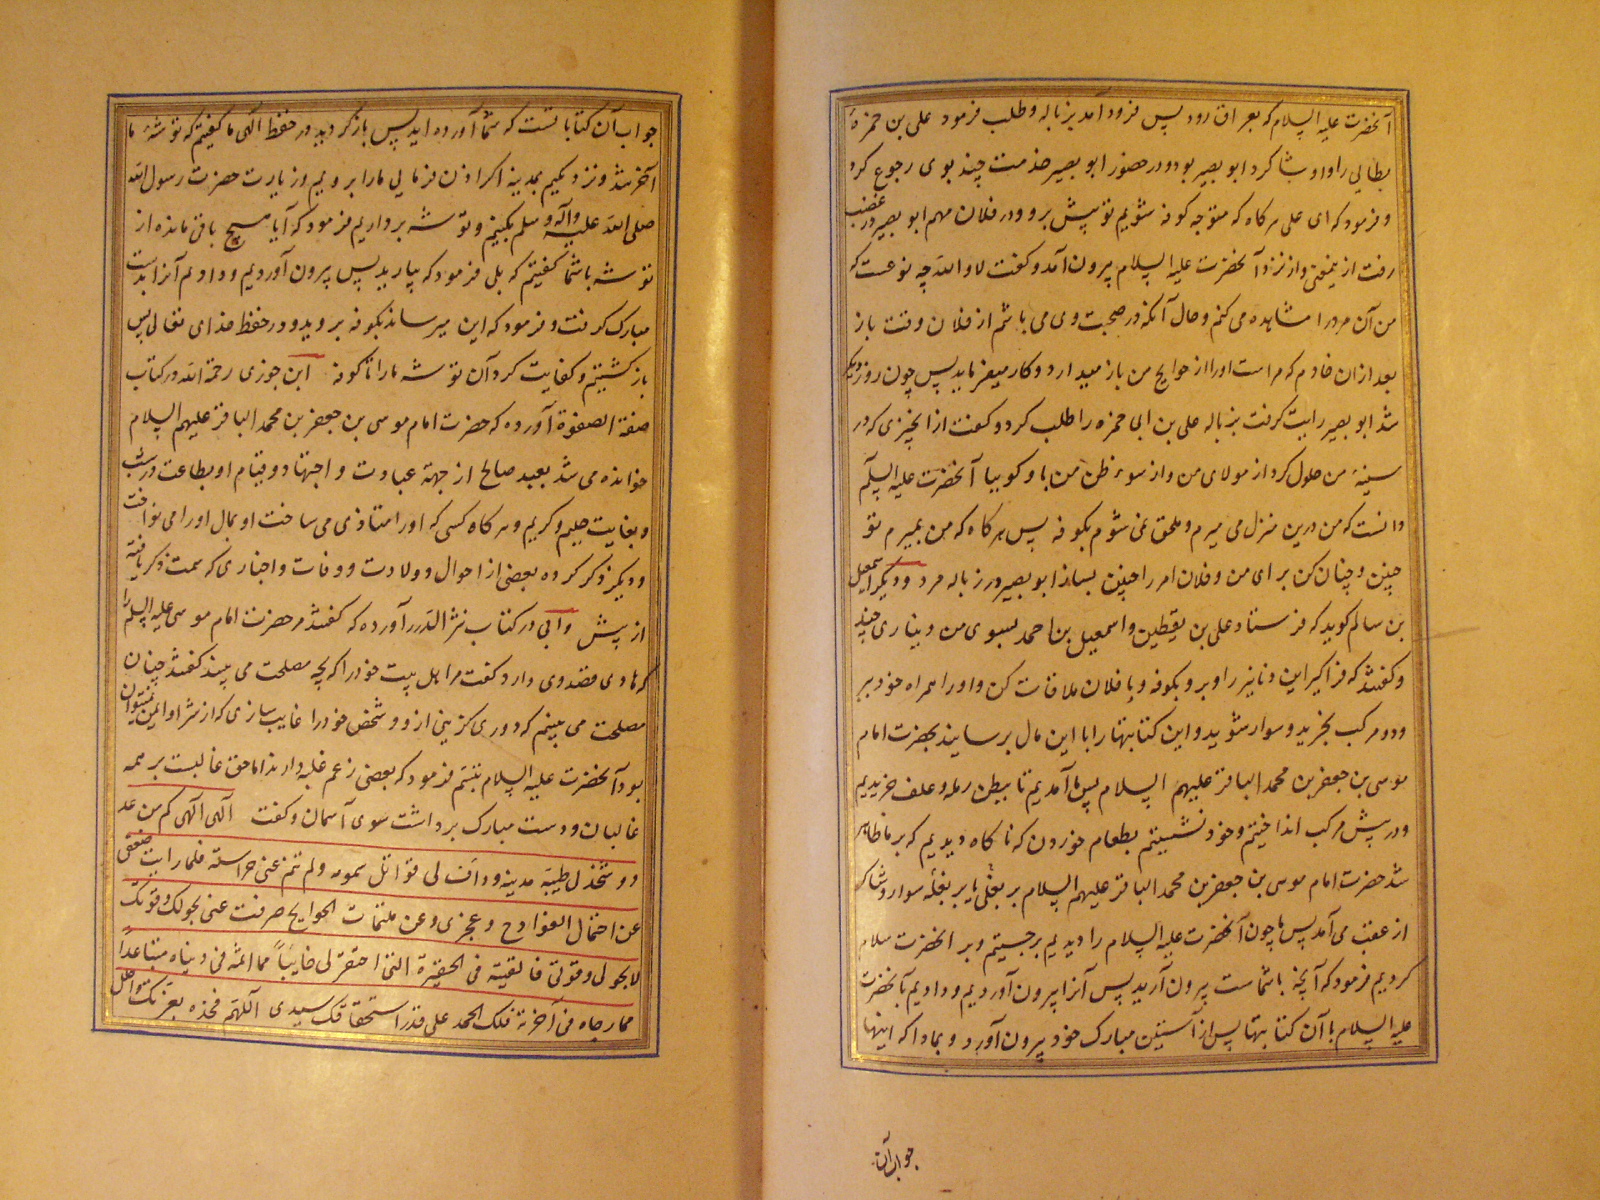 آنحضرت علیه السلام که بعراق رود پس فرود آمد بزباله وطلب فرمود علی بن حمزهٔ
بطاینی را واو شاکرد ابو بصیر بود ودر حضور ابو بصیر خدمت چند بوی رجوع کرد
و فرمود که ای علی هرکاه که متوجه کوفه شویم تو پیش برو ودر فلان مهم ابو بصیر در غضب
رفت از نمعنی واز نزد آنحضرت علیه السلام بیرون آمد وکفت لا والله چه نوعست که
من آن مرد را مشاهده می کنم وحال آنکه در صحبت وی می باشم از فلان وقت باز
بعد ازان خادم که مراست اورا از حوایج من باز میدارد وکار میفرماید پس چون روز دیکر
شد ابو بصیر را تب کرفت بزباله علی بن ابی حمزه را طلب کرد وکفت از انچیزی که در
سینهٔ من حلول کرد از مولای من واز سوء ظن من با او کوییا آنحضرت علیه السلام
دانست که من درین منزل می میرم وملحق نمی شوم بکوفه پس هرکاه که من بمیرم تو
چنین وچنان کن برای من وفلان امر را چنین بساز ابو بصیر در زباله مرد ودیکر اسمعیل
بن سالم کوید که فرستاد علی بن یقطین واسمعیل بن احمد بسوی من دیناری چند
وکفتند که فراکیر این دنانیر را وبرو بکوفه و با فلان ملاقات کن واورا همراه خود ببر
ودو مرکب بخرید وسوار شوید واین کتابتها را با این مال برسانید بحضرت امام
موسی بن جعفر بن محمد الباقر علیهم السلام پس ما آمدیم تا ببطن رمله وعلف خریدیم
ودر پیش مرکب انداختیم وخود نشستیم بطعام خوردن که ناکاه دیدیم که بر ما ظاهر
شد حضرت امام موسی بن جعفر بن محمد الباقر علیهم السلام بر بغلی یا بر بغلهٔ سوار وشاکر
از عقب می آمد پس ما چون آنحضرت علیه السلام را دیدیم برجستیم وبر انحضرت سلام
کردیم فرمود که آنچه باشماست بیرون آرید پس آنرا بیرون آوردیم ودادیم بآنحضرت
علیه السلام با آن کتابتها پس از آستین مبارک خود بیرون آورد وبما داد که اینها
جواب آن
جواب آن کتاباتست که شما آورده اید پس باز کردید در حفظ الهی ما کفتیم که توشهٔ ما
آخر شد ونزدیکیم بمدینه اکر اذن فرمایی مارا برویم وزیارت حضرت رسول الله
صلی الله علیه وآله وسلم بکنیم وتوشه برداریم فرمود که آیا هیچ باقی مانده از
توشه باشما کفتیم که بلی فرمود که بیارید پس بیرون آوردیم ودادیم آنرا بدست
مبارک کرفت وفرمود که این میرساند بکوفه بروید ودر حفظ خدای تعالی پس
بازکشتیم وکفایت کرد آن توشه مارا تا کوفه ابن جوزی رحمة الله در کتاب
صفة الصفوة آورده که حضرت امام موسی بن جعفر بن محمد الباقر علیهم السلام
خوانده می شد بعبد صالح از جهة عبادت و اجتهاد وقیام او بطاعت در شب
وبغایت حلیم وکریم وهرکاه کسی که اورا متاذی می ساخت او بمال اورا می نواخت
ودیکر ذکر کرده بعضی از احوال وولادت ووفات واخباری که سمت ذکر یافته
از پیش وآبی در کتاب نثر الدرر آورده که کفتند مر حضرت امام موسی علیه السلام را
که هادی قصدوی دارد کفت مر اهل بیت خودرا که چه مصلحت می بینید کفتند چنان
مصلحت می بینیم که دوری کزینی ازو وشخص خودرا غایب سازی که از شر او ایمن نمیتوان
بود آنحضرت علیه السلام تبسم فرمود که بعضی زعم غلبه دارند اما حق غالبست بر همه
غالبان ودست مبارک برداشت سوی آسمان وکفت الهی الهی کم من عد
دو شحذ لی ظبیة مدینه وداف لی قواتل سمومه ولم تنم عنی حراسته فلما رایت ضعفی
عن احتمال الفوادح وعجزی عن ملتمات الحوایج صرفت عنی بحولک وقوتک
لا بحولی وقوتی فالقیته فی الحفیرة التی احتفر لی خایباً مما امله فی دنیاه متباعداً
مما رجاه فی آخرته فلک الحمد علی قدر استحقاقک سیدی اللهم فخذه بعزتک وافلل